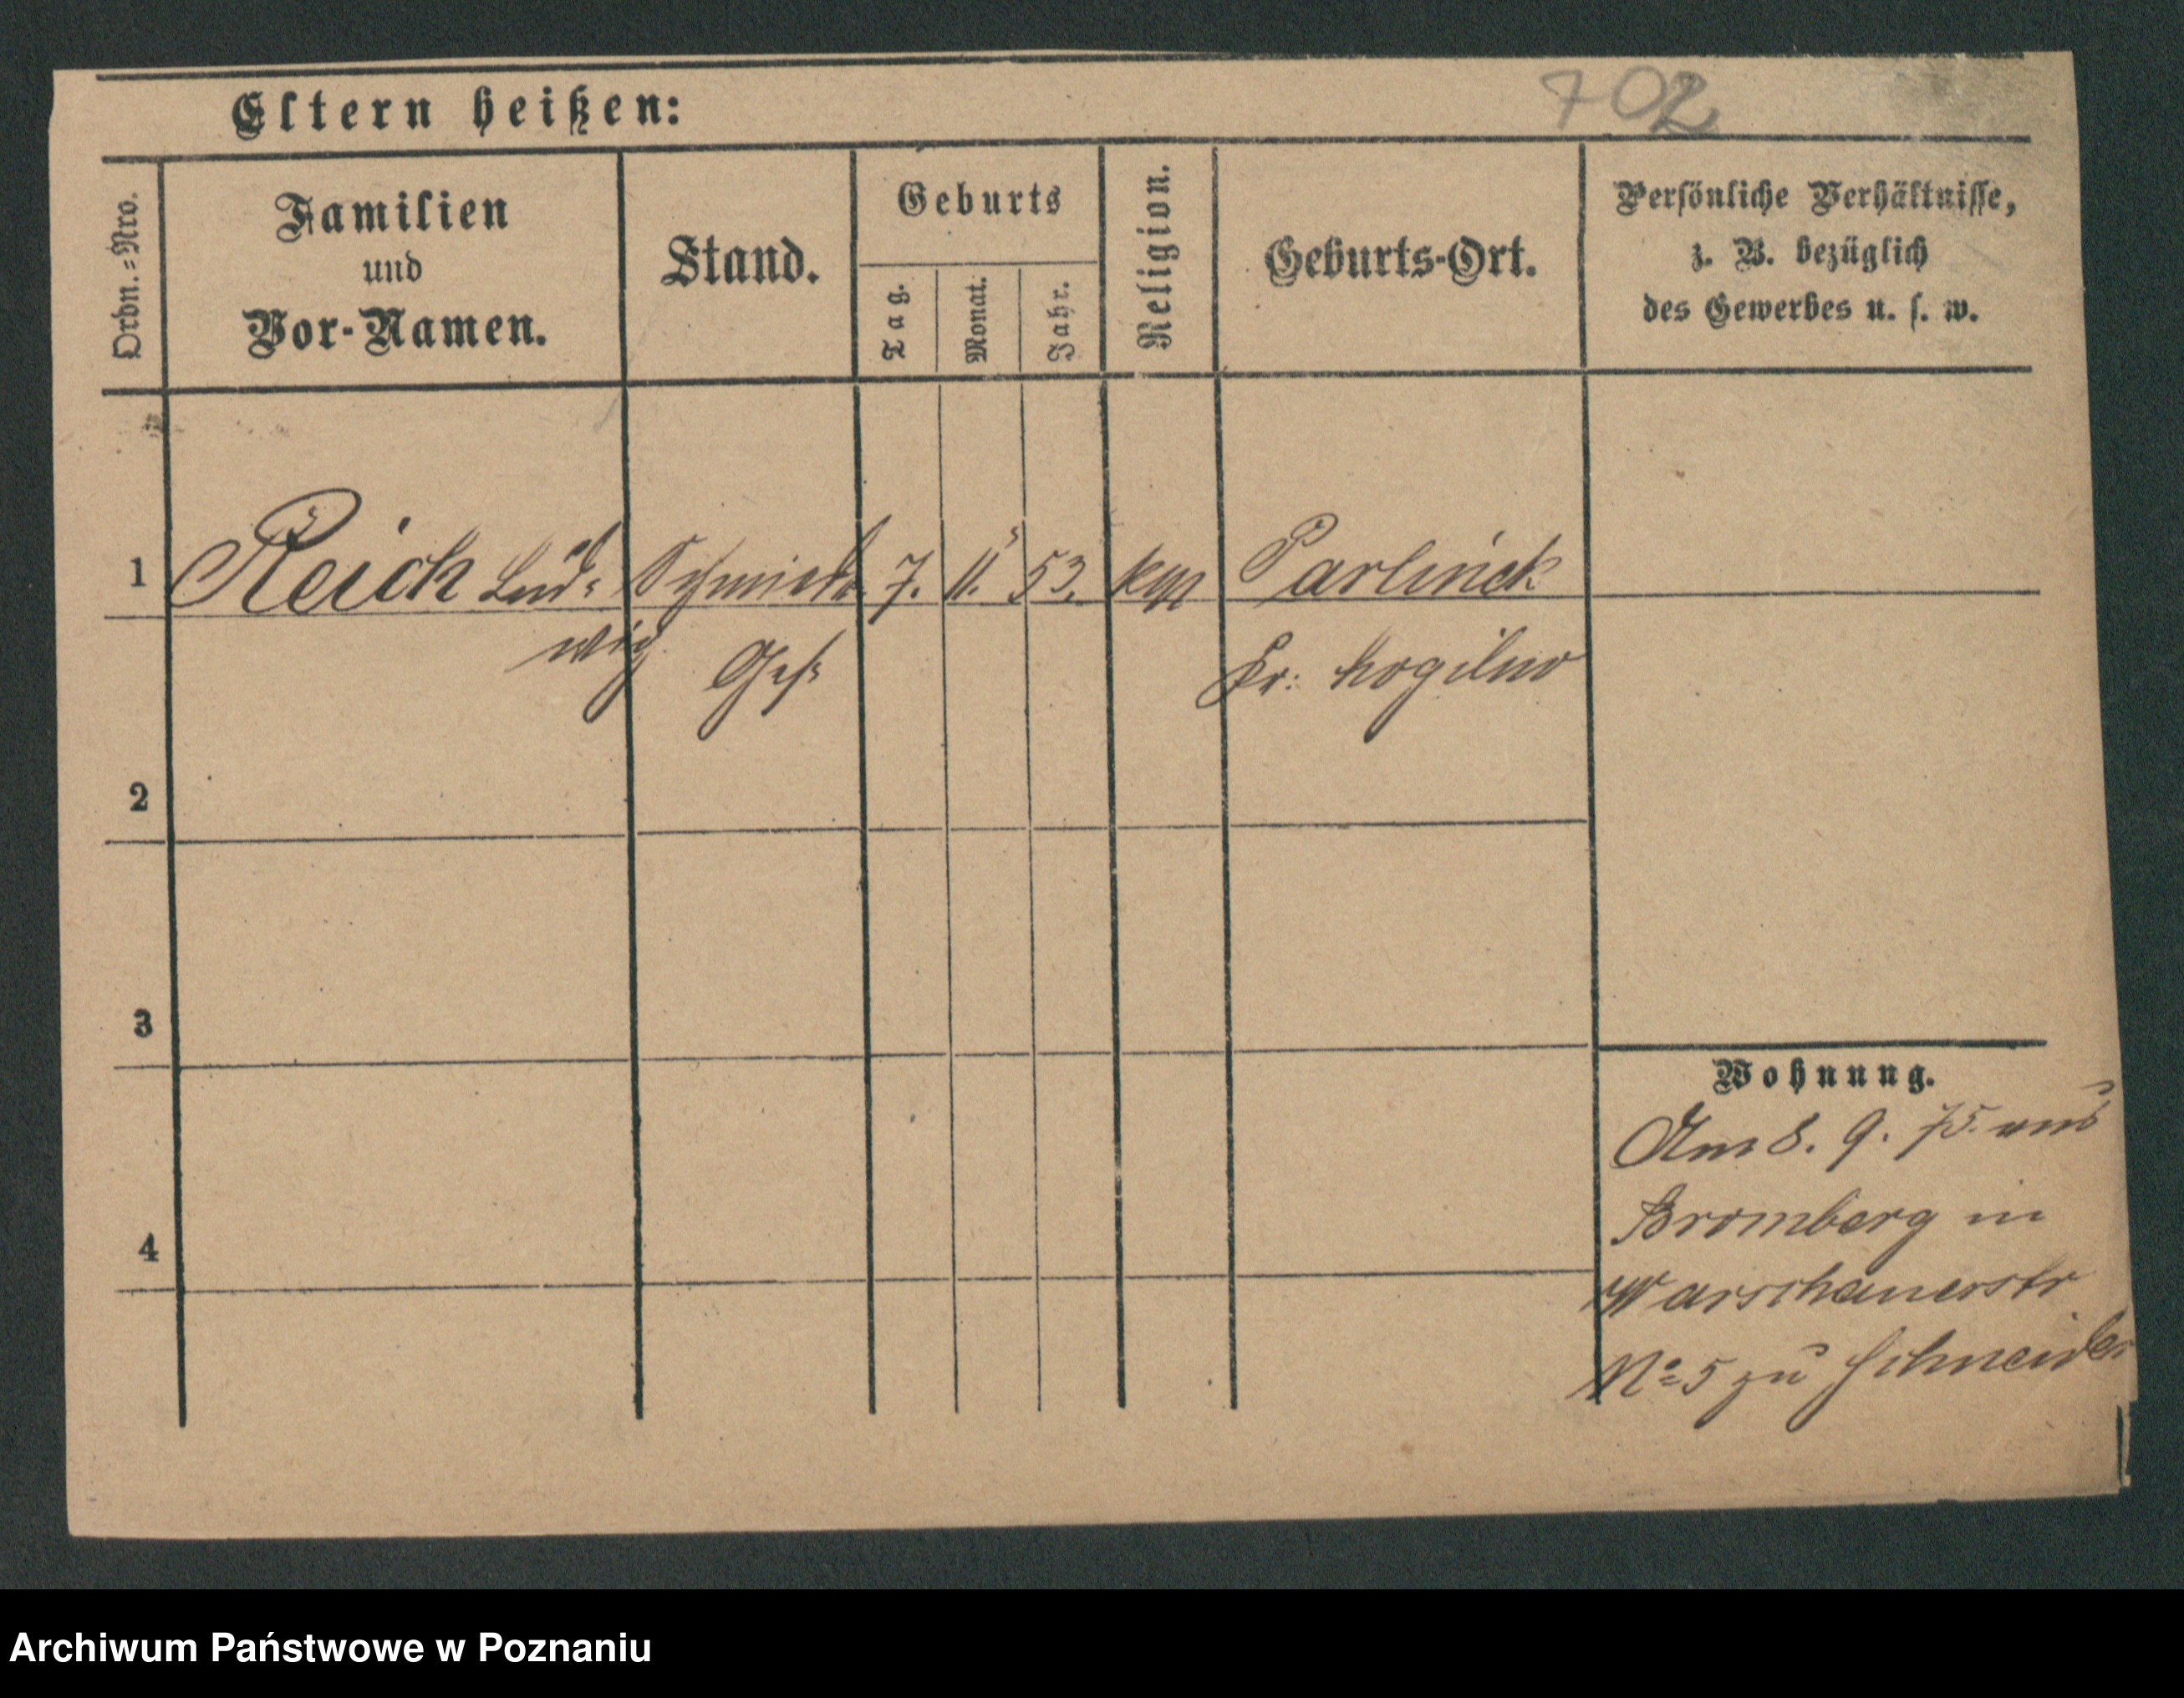 702
Eltern heißen:
Ordn.=Nro.
Familien
und
Vor-Namen.
Stand.
Geburts
Tag.
Monat.
Jahr.
Religion.
Geburts-Ort.
Persönliche Verhältnisse,
z. B. bezüglich
des Gewerbes u. s. w.
1 Reich Lud= Schmiede 7. 11. 53. Parlinek
wig Ges: Kr: Mogilno
2
3
4
Wohnung.
Am 8. 9. 75. aus
Bromberg in
Warschauerstr
No 5 zu Schneider
Archiwum Państwowe w Poznaniu